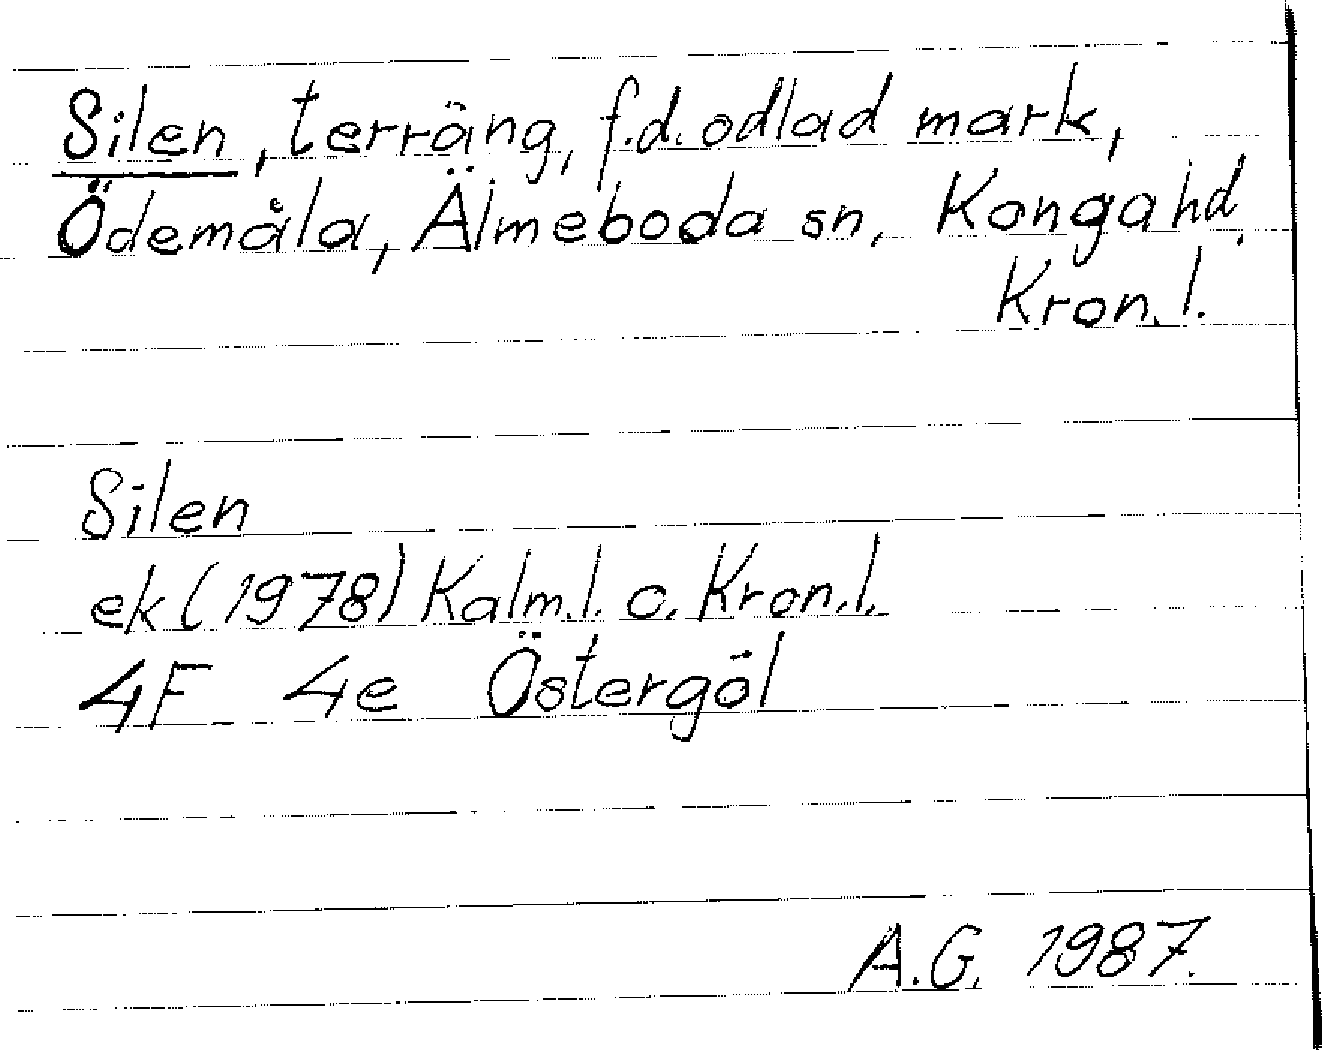 Silen, terräng, f.d. odlad mark,
Ödemåla, Älmeboda sn, Konga hd,
Kron. l.
Silen
ek (1978) Kalm.l. o. Kron.l.
4F 4e Östergöl
A.G. 1987.